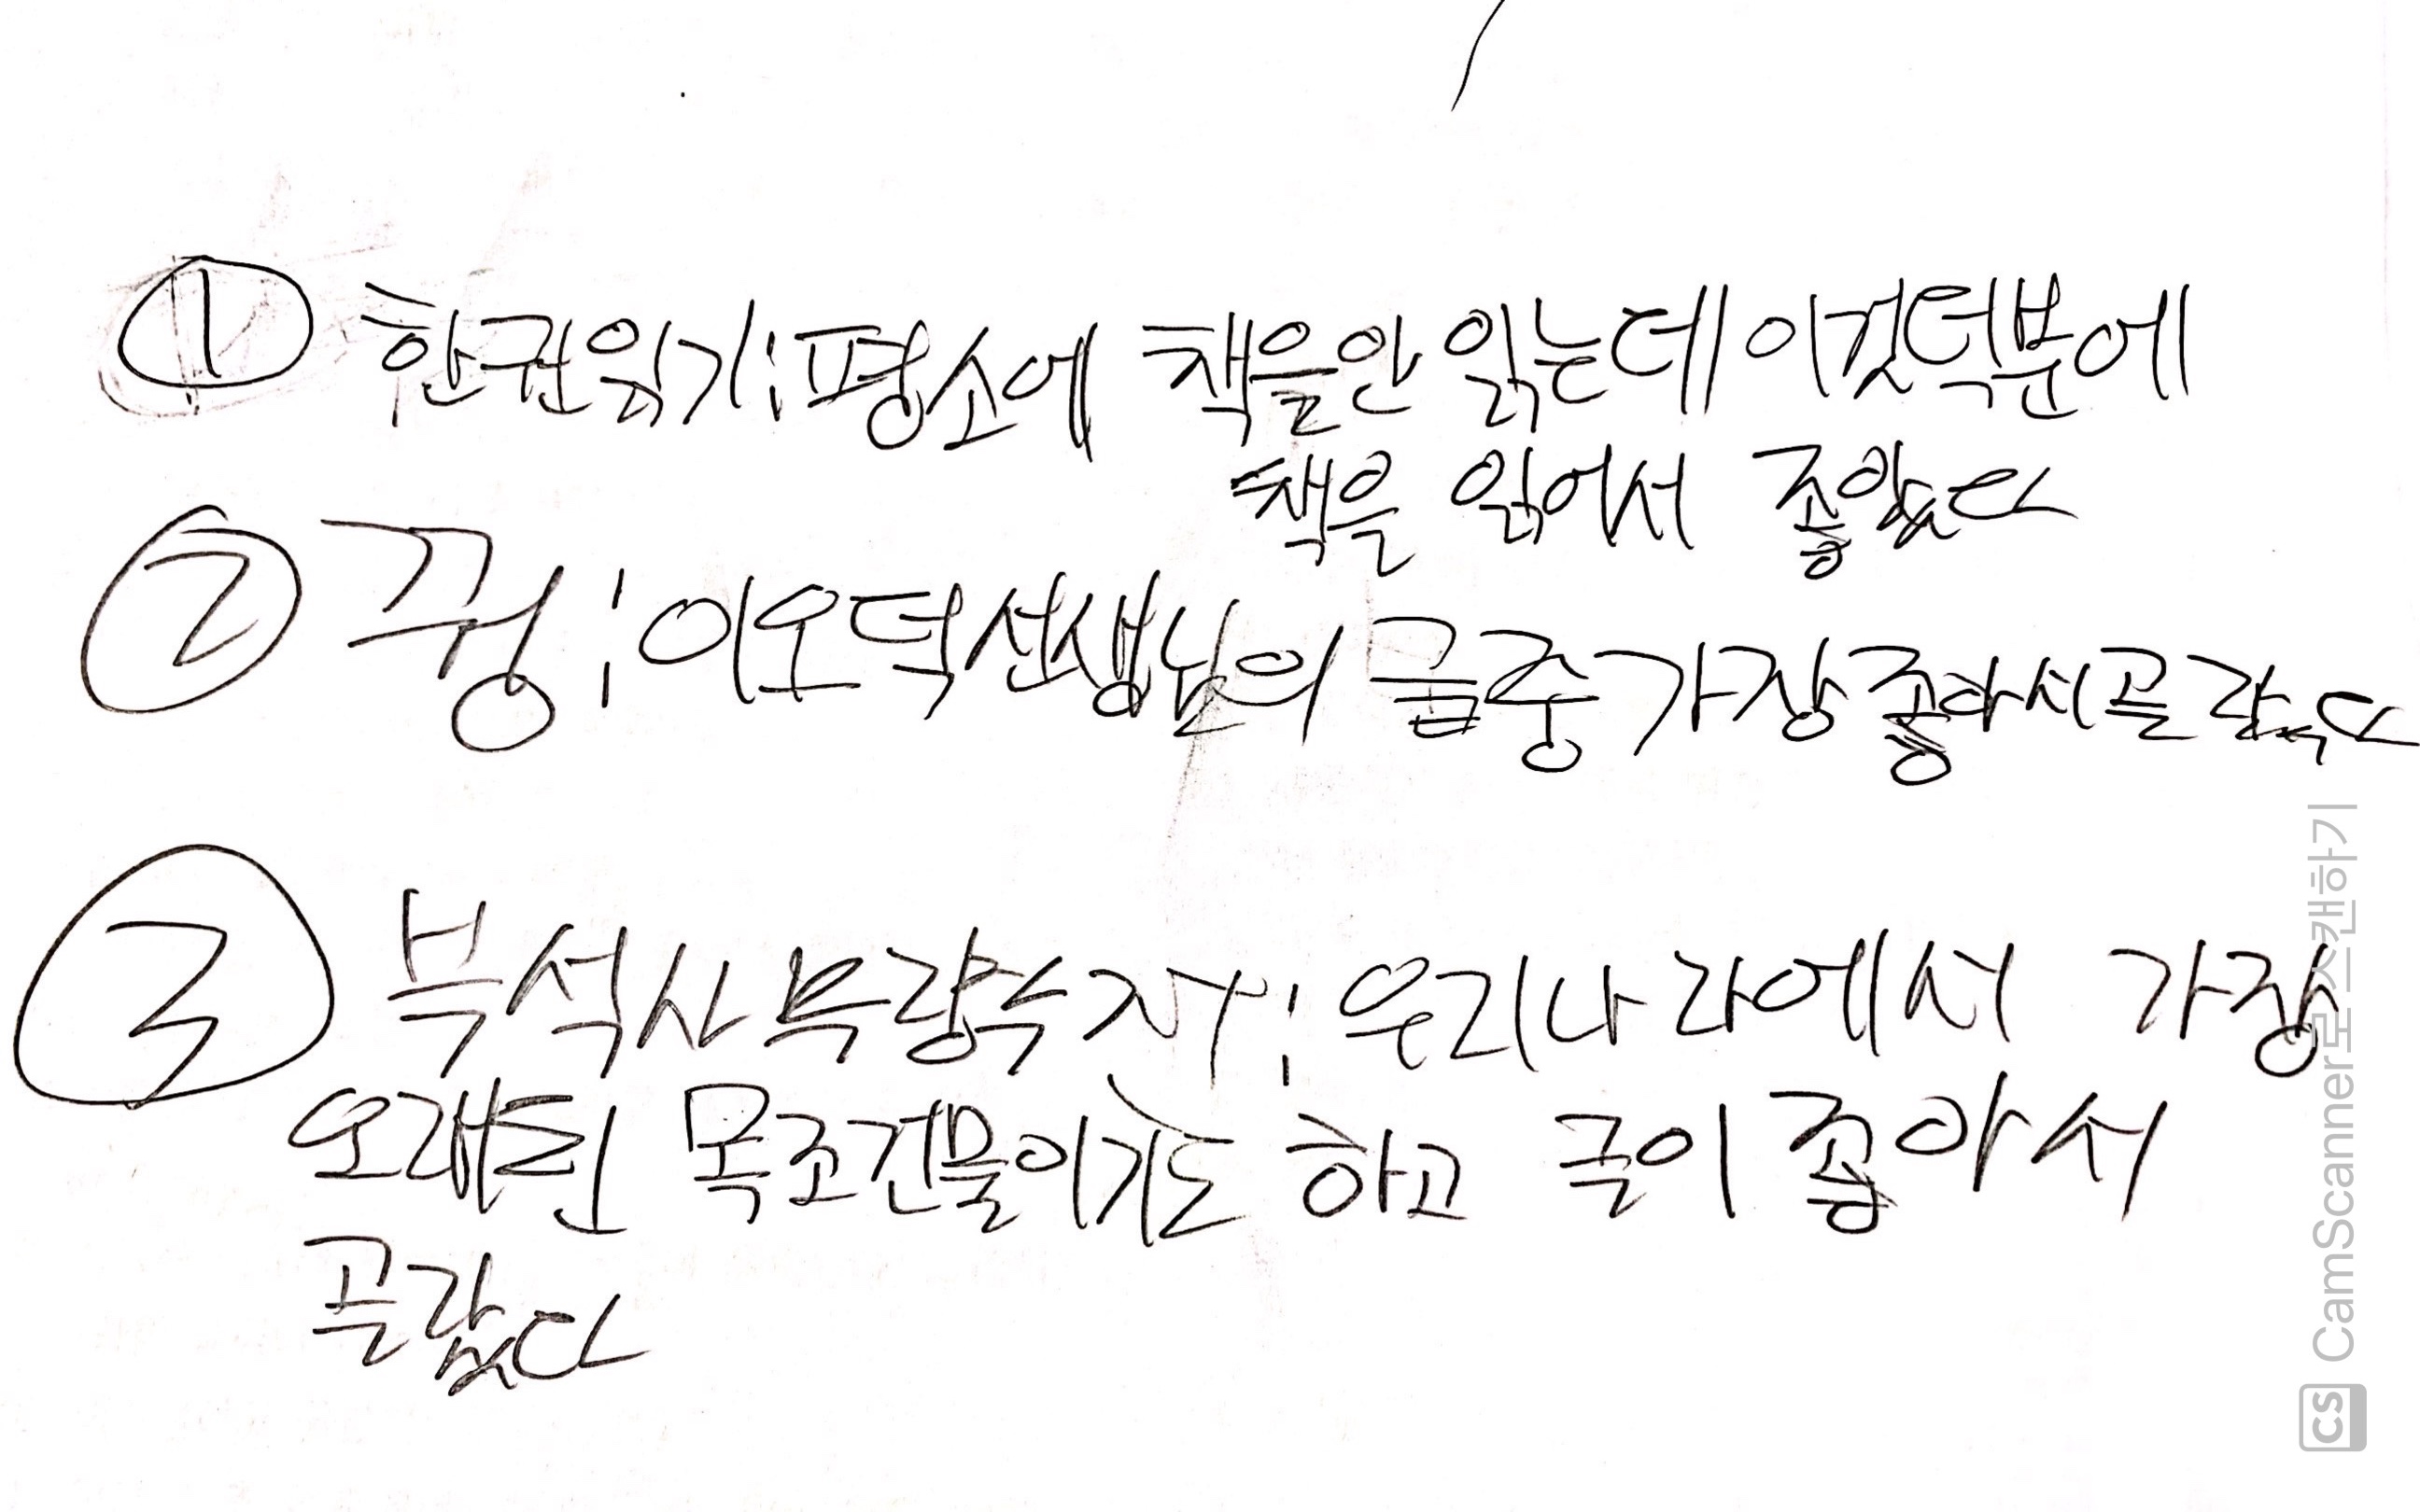 ① 한권읽기:평소에 책을안 읽는데 이것덕분에
책을 읽어서 좋았다
② 꿩:이오덕선생님의 글중 가장 좋아서골랐다
③ 부석사무량수저:우리나라에서 가장
오래된 목조건물이기도 하고 곡이 좋아서
골랐다
CS CamScanner로 스캔하기